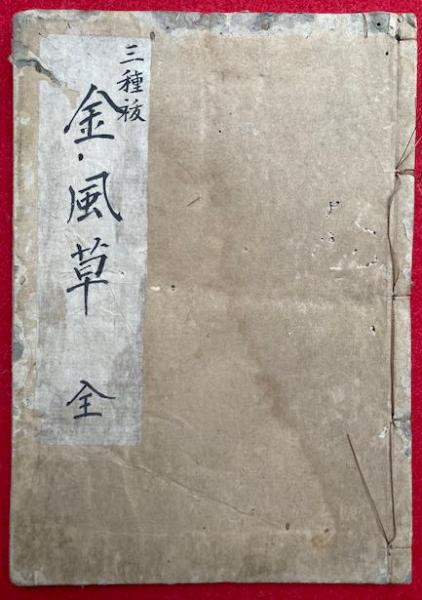 三種祓
金風草 全